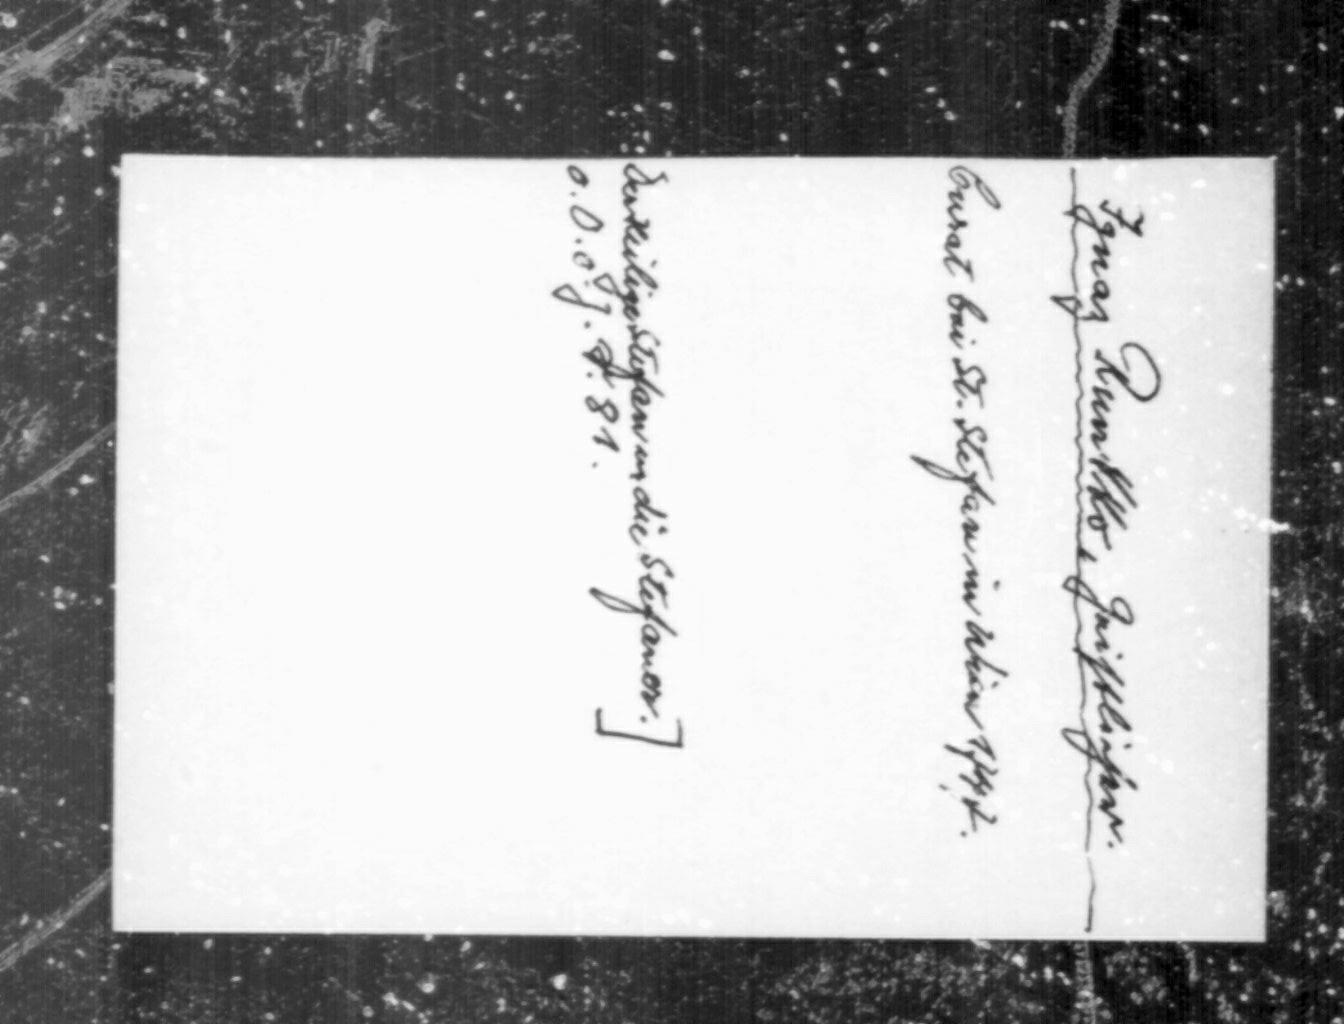 Ignaz Geistlicher.
Curat bei St. Stefan in Wien
Der heilige Stefan u die Stefanor.]
o. O. o. J. S. 81.